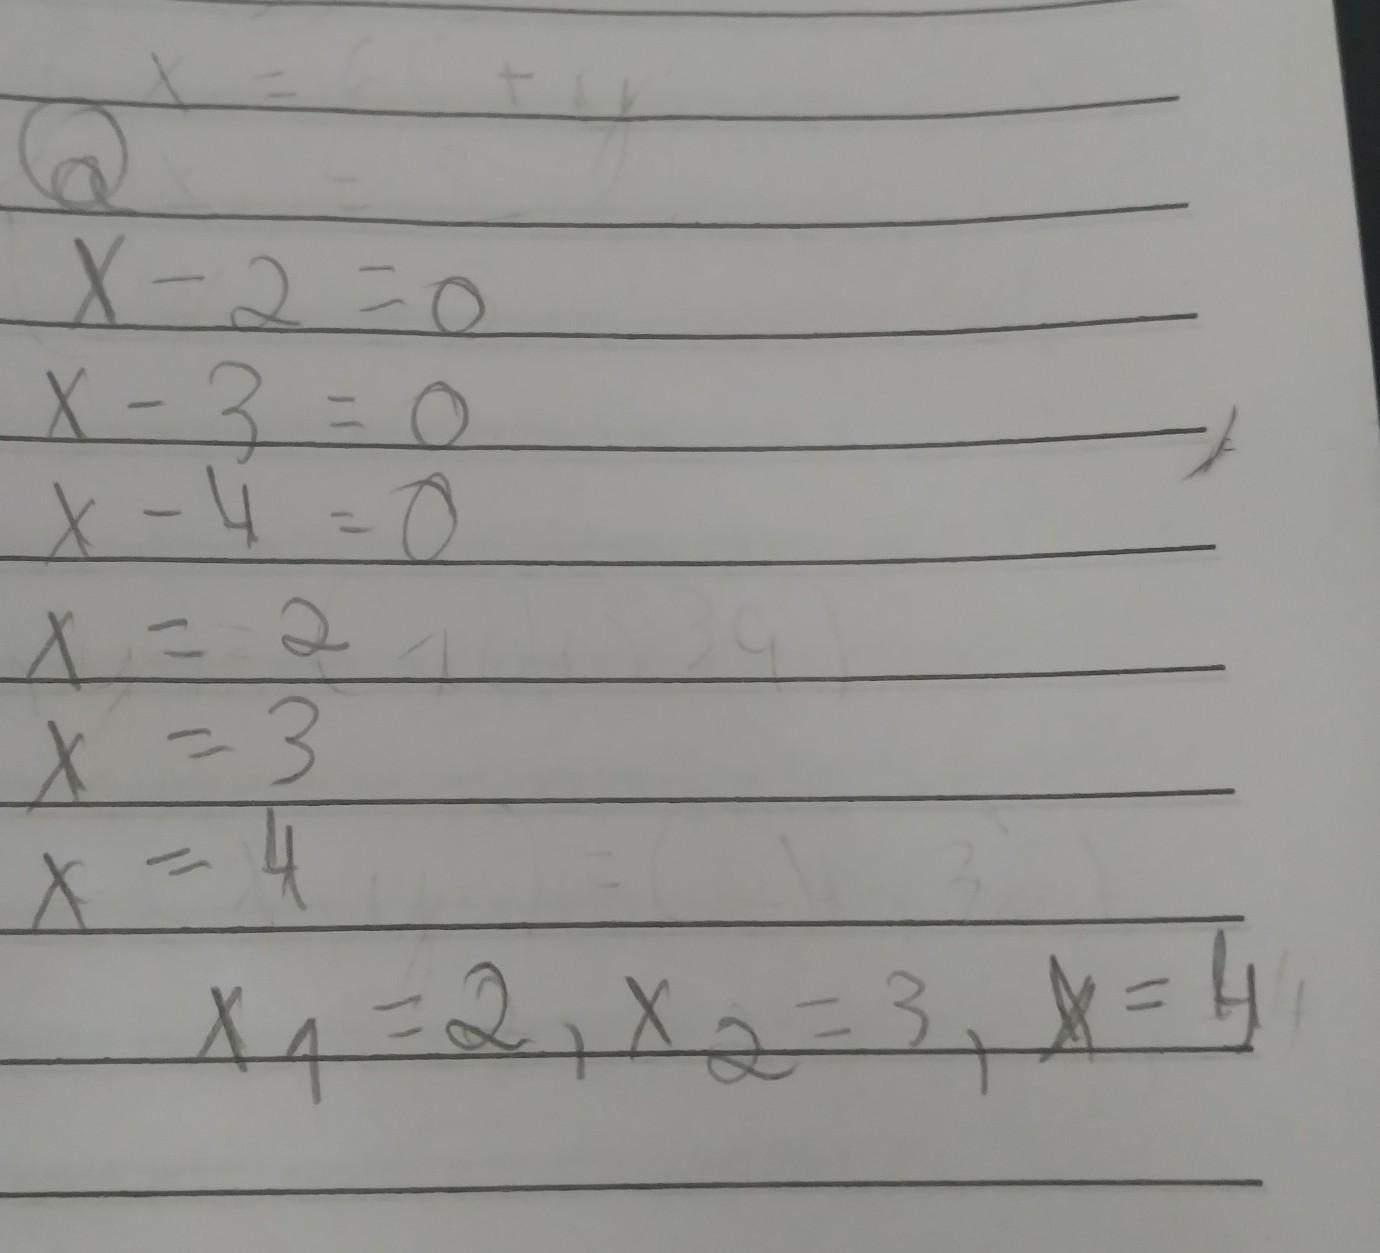 a
x - 2 = 0
x - 3 = 0
x - 4 = 0
x = 2
x = 3
x = 4
x₁ = 2, x₂ = 3, x = 4